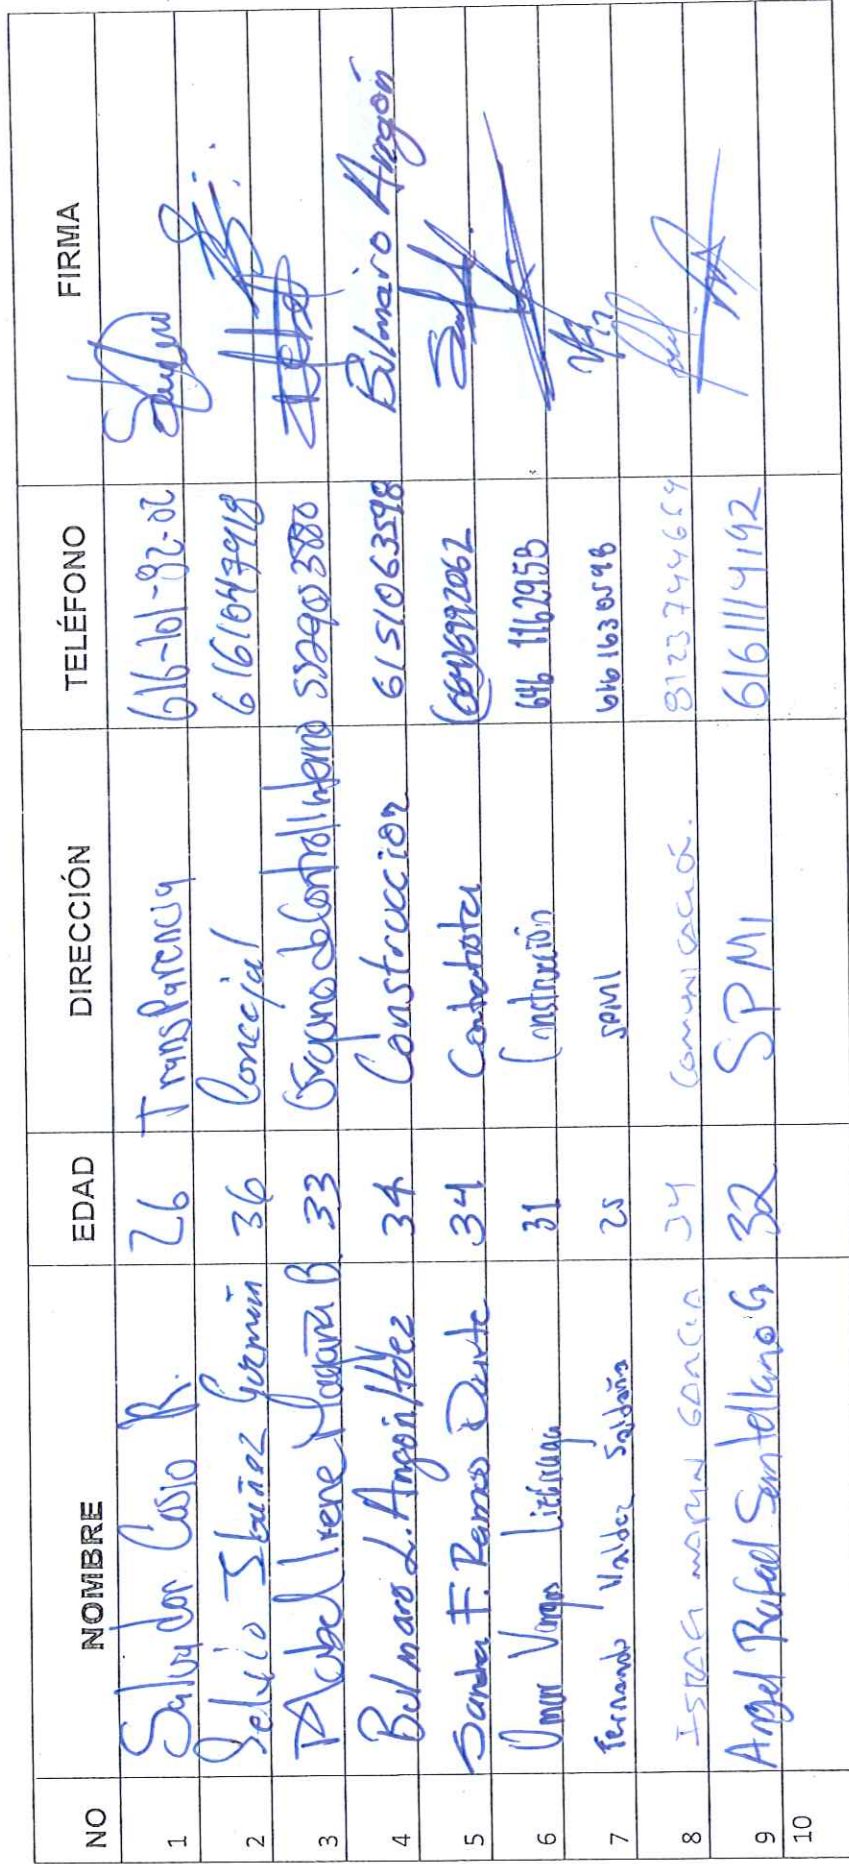 NO NOMBRE EDAD DIRECCIÓN TELÉFONO FIRMA
1 Salvador Cosio R. 26 Transparencia 616-101-92-02
2 Selvio Ibañez Guzmán 36 Concejal 6161047918
3 Mabel Irene Magaña B. 33 Organo de Control Interno 5529053880
4 Bulmaro L. Angón Hdez 34 Construccion 6151063598 Bulmaro Angón
5 Sandra F. Ramos Duarte 34 Contratista 6646992062
6 Omar Vargas Lizárraga 31 Construcción 646 1162958
7 Fernando Valdez Saldaña 25 SPMI 6161630598
8 Israel Marin Garcia 34 Comunicació. 8123744659
9 Angel Rafael Santellano G 32 SPMI 6161114192
10